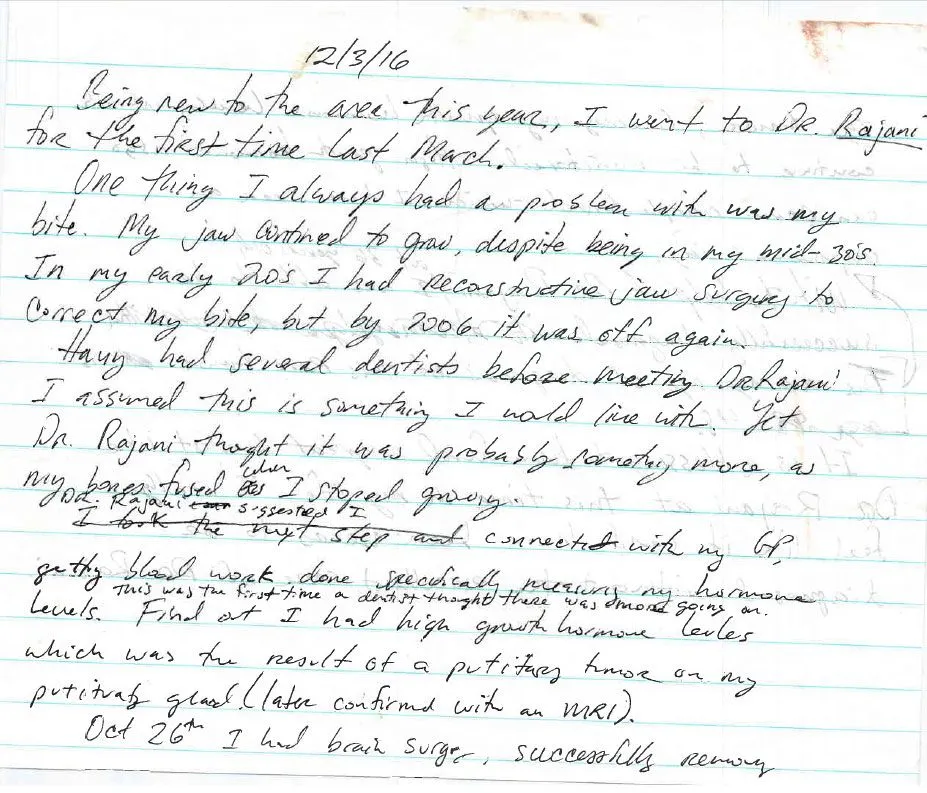 12/3/16
Being new to the area this year, I went to Dr. Rajani
for the first time last March.
One thing I always had a problem with was my
bite. My jaw contined to grow, despite being in my mid-30's.
In my early 20's I had reconstructive jaw surgery to
correct my bite, but by 2006 it was off again.
Having had several dentists before meeting Dr. Rajani
I assumed this is something I would live with. Yet
Dr. Rajani thought it was probably something more, as
when
my bones fused I stoped growing.
Dr. Rajani suggested I
I took the next step and connected with my GP,
getting blood work done specifically measuring my hormone
This was the first time a dentist thought there was more going on.
levels. Find out I had high growth hormone levles
which was the result of a putitary tumor on my
putitutary gland. (later confirmed with an MRI).
Oct 26th I had brain surgery, successfully removing